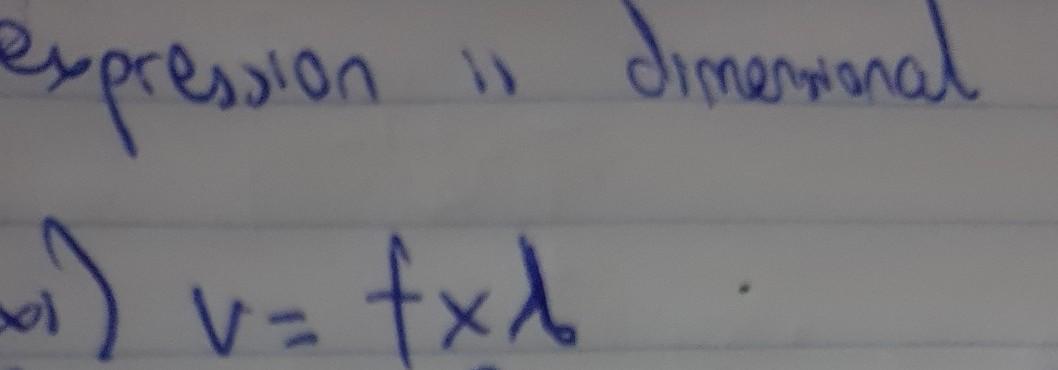 expression is dimensional
xi) v = f x λ